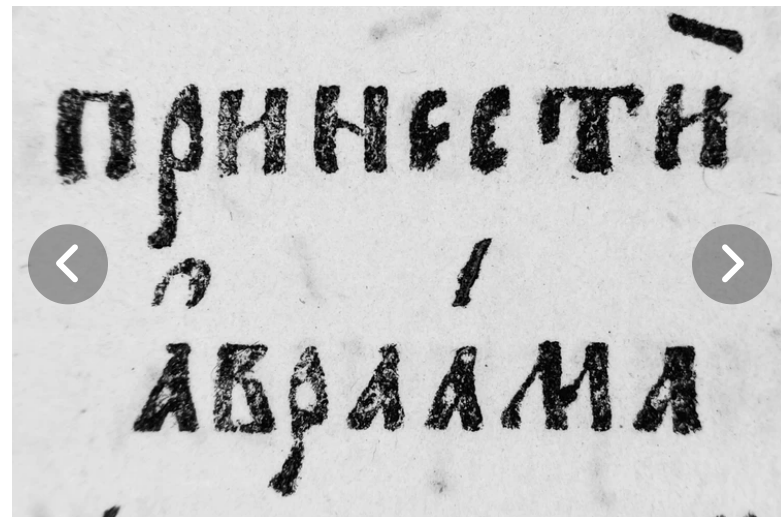 принестѝ
а҆враа́ма